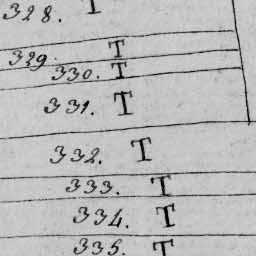 328. T
329. T
330. T
331. T
332. T
333. T
334. T
335. T